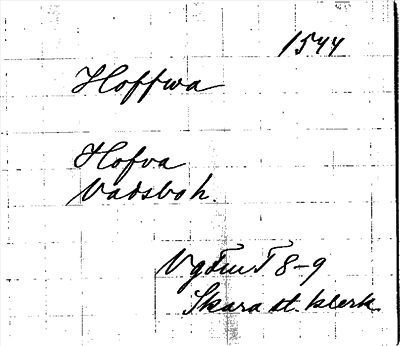 1544
Hoffwa
Hofva
Vadsboh.
VgFmT 8-9
Skara st. klerk.